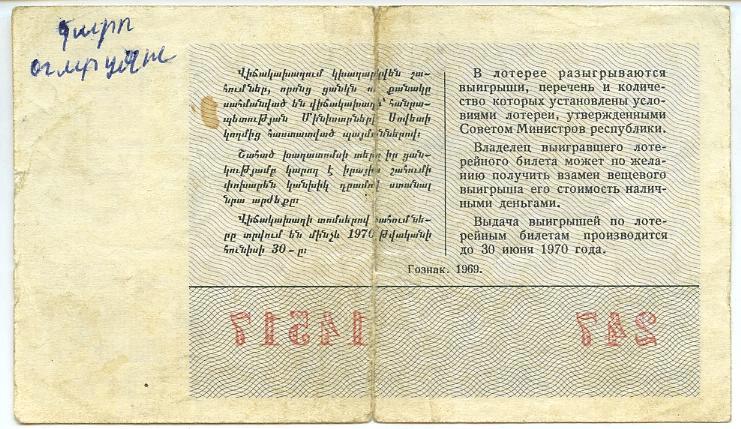 Վիճակախաղում կխաղարկվեն շա-
հումներ, որոնց ցանկն ու քանակը
սահմանված են վիճակախաղի՝ հանրա-
պետության Մինիստրների Սովետի
կողմից հաստատված պայմաններով։
Շահած խաղատոմսի տերը իր ցան-
կությամբ կարող է իրային շահումի
փոխարեն կանխիկ դրամով ստանալ
նրա արժեքը։
Վիճակախաղի տոմսերով շահումնե-
րը տրվում են մինչև 1970 թվականի
հունիսի 30-ը։
В лотерее разыгрываются
выигрыши, перечень и количе-
ство которых установлены усло-
виями лотереи, утвержденными
Советом Министров республики.
Владелец выигравшего лоте-
рейного билета может по жела-
нию получить взамен вещевого
выигрыша его стоимость налич-
ными деньгами.
Выдача выигрышей по лоте-
рейным билетам производится
до 30 июня 1970 года.
Гознак. 1969.
14517
247